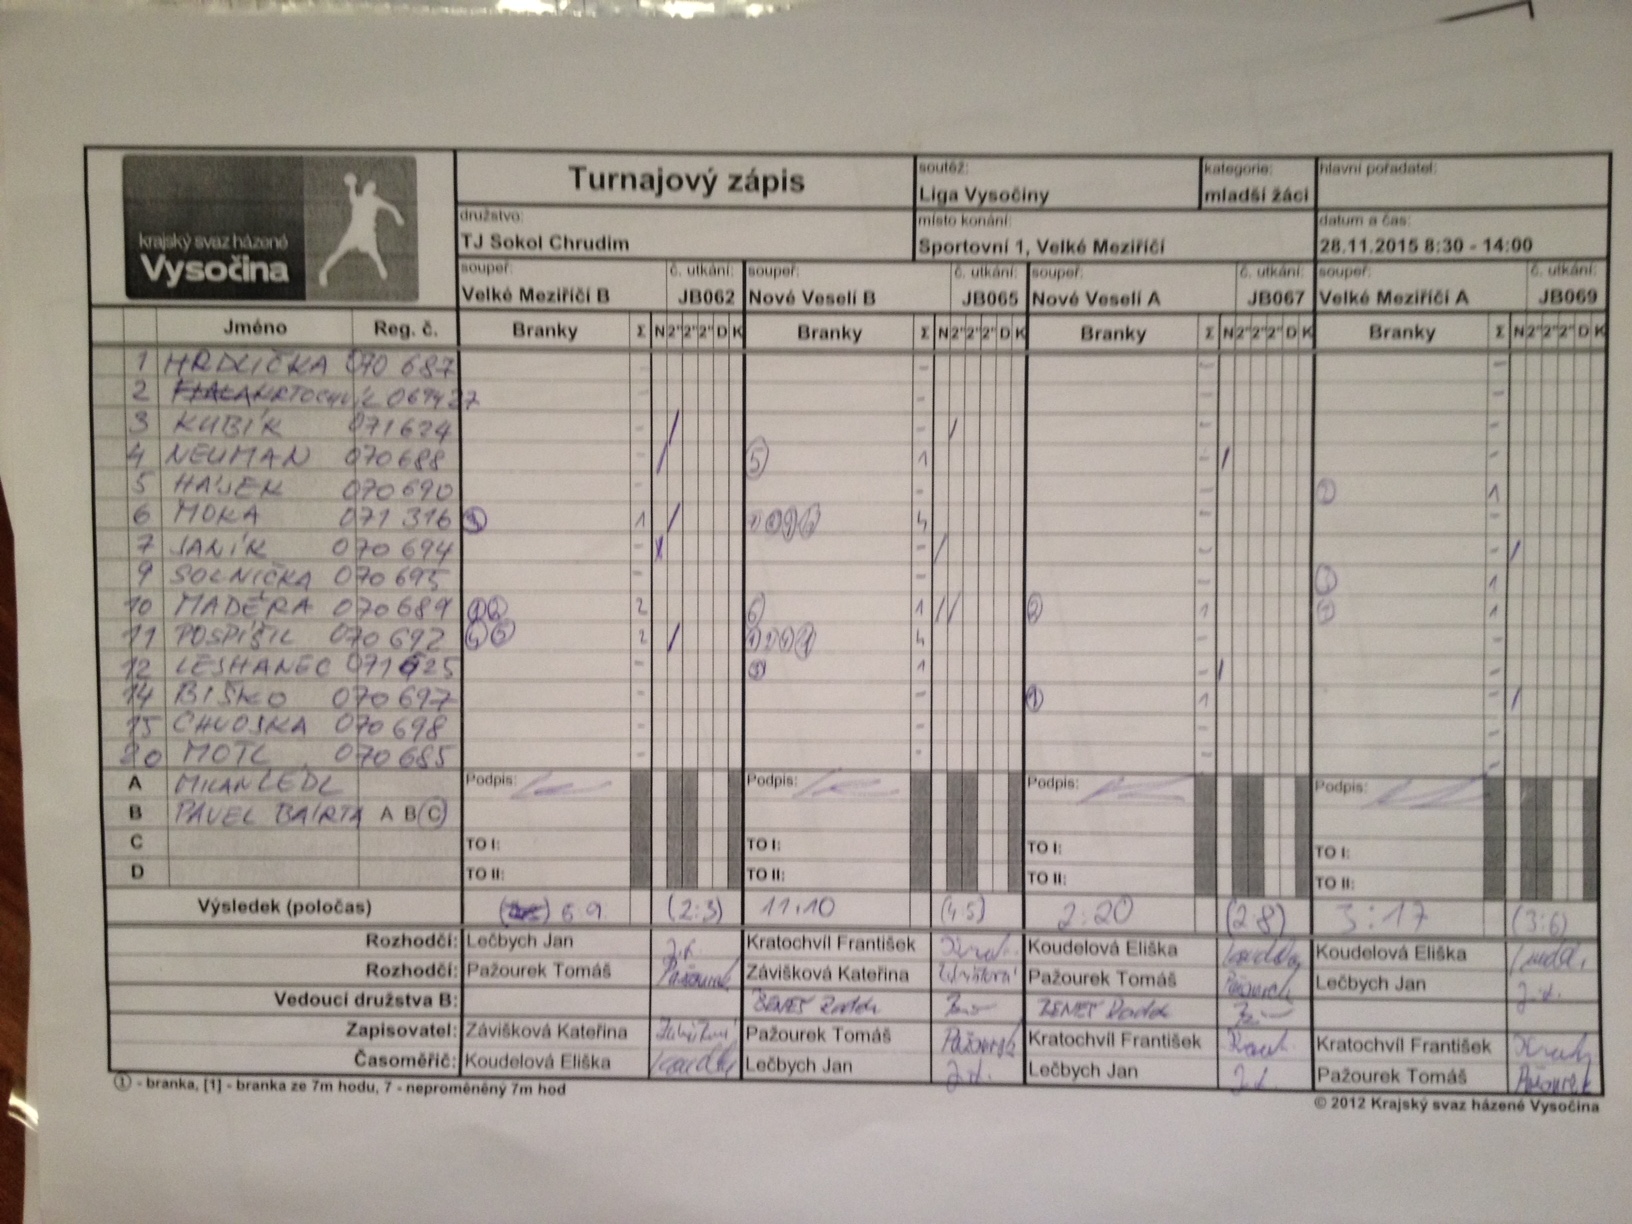 krajský svaz házené
Vysočina
Turnajový zápis
soutěž:
Liga Vysočiny
kategorie:
mladší žáci
hlavní pořadatel:
družstvo:
TJ Sokol Chrudim
místo konání:
Sportovní 1, Velké Meziříčí
datum a čas:
28.11.2015 8:30 - 14:00
soupeř: č. utkání: soupeř: č. utkání: soupeř: č. utkání: soupeř: č. utkání:
Velké Meziříčí B JB062 Nové Veselí B JB065 Nové Veselí A JB067 Velké Meziříčí A JB069
Jméno Reg. č. Branky Σ N 2" 2" 2" D K Branky Σ N 2" 2" 2" D K Branky Σ N 2" 2" 2" D K Branky Σ N 2" 2" 2" D K
1 HRDLIČKA 070 687 - - - -
2 069427 - - - -
3 KUBÍK 071624 - / - / - -
4 NEUMAN 070688 - / 5 1 - / -
5 HÁJEK 070690 - - - 1
6 MOKA 071 316 1 / 4 - -
7 JANÍK 070 694 - - / - - /
9 SOLNIČKA 070695 - - - 1
10 MADĚRA 070689 1 2 2 6 1 // 2 1 1
11 POSPÍŠIL 070692 4 5 2 / 4 - -
12 LESHANEC 071625 - 1 - / -
14 BIŠKO 070697 - - 1 1 - /
15 CHVOJKA 070698 - - - -
20 MOTL 070685 - - - -
A MILAN LEDL Podpis: Podpis: Podpis: Podpis:
B PAVEL BÁRTA A B C
C TO I: TO I: TO I: TO I:
D TO II: TO II: TO II: TO II:
Výsledek (poločas) 6 9 (2:3) 11:10 (4:5) 2:20 (2:8) 3:17 (3:6)
Rozhodčí: Lečbych Jan Kratochvíl František Koudelová Eliška Koudelová Eliška
Rozhodčí: Pažourek Tomáš Pažourek Závišková Kateřina Pažourek Tomáš Lečbych Jan
Vedoucí družstva B: BENEŠ BENEŠ
Zapisovatel: Závišková Kateřina Pažourek Tomáš Pažourek Kratochvíl František Kratochvíl František
Časoměřič: Koudelová Eliška Lečbych Jan Lečbych Jan Pažourek Tomáš Pažourek
① - branka, [1] - branka ze 7m hodu, 7 - neproměněný 7m hod
© 2012 Krajský svaz házené Vysočina